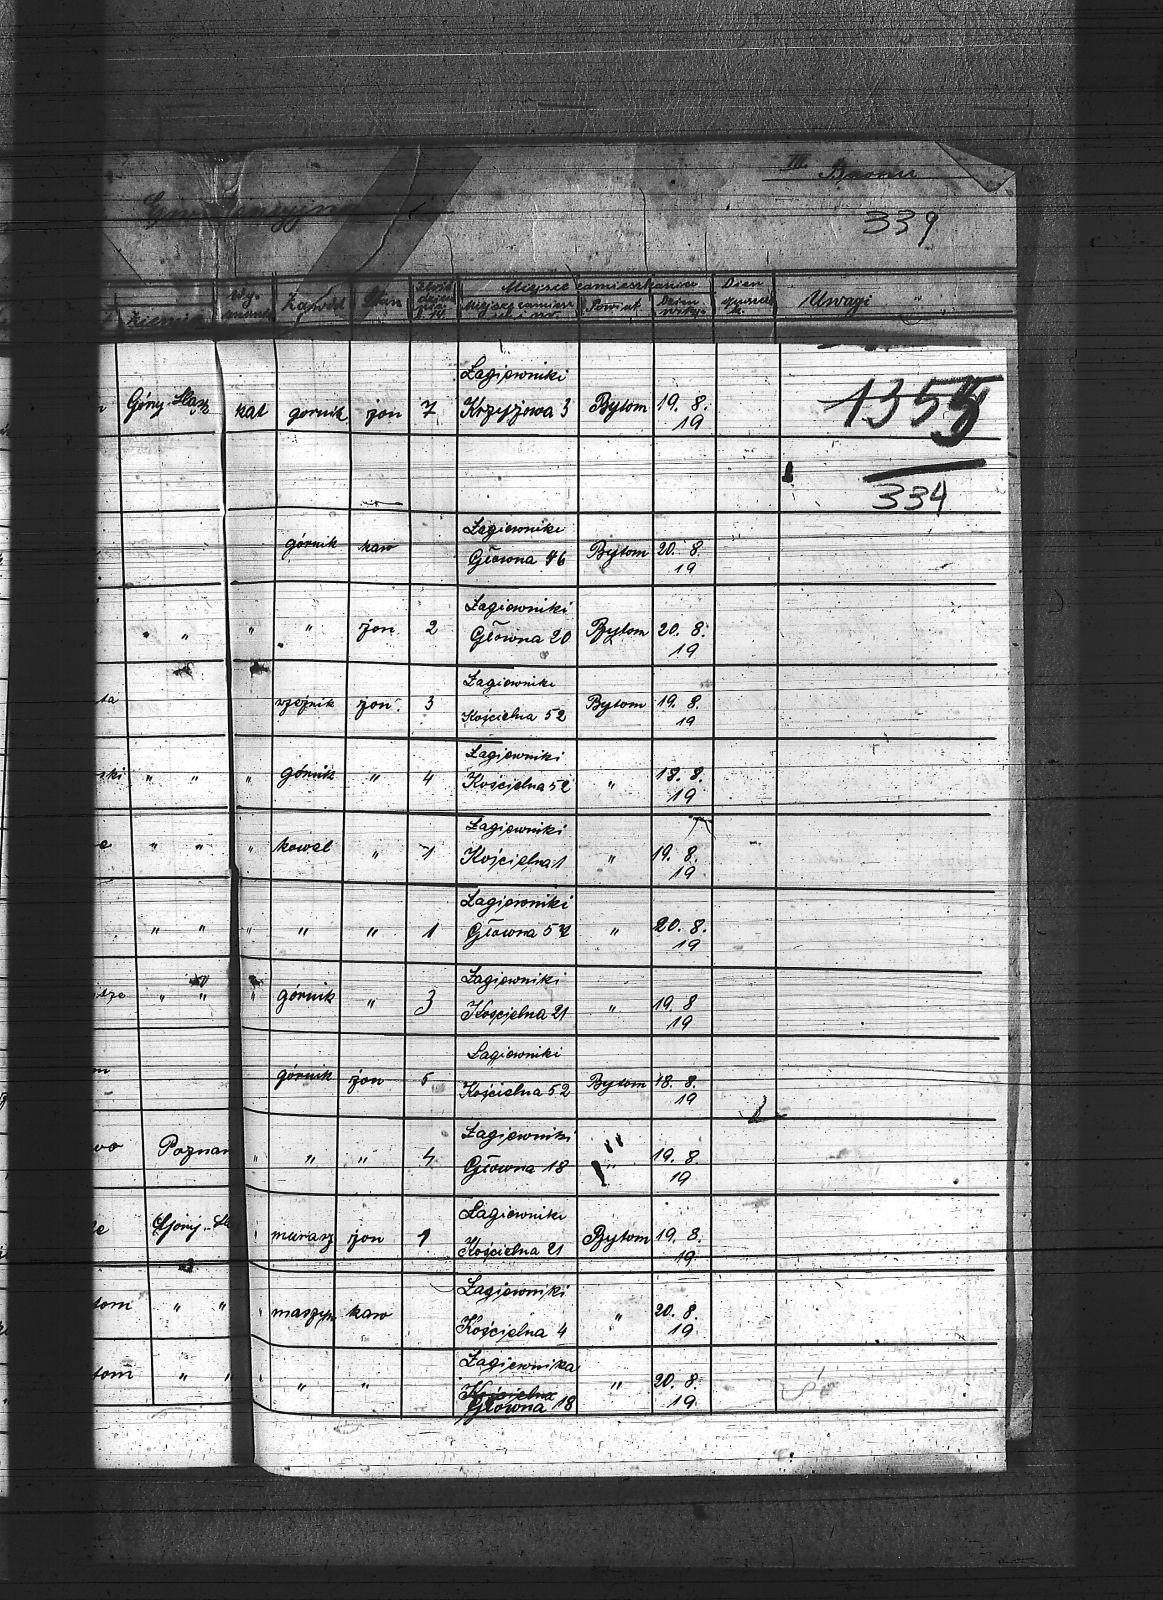 III. Baonu
339
Miejsce zamieszkania
Ziemia Zawód Stan Powiat Dzień Uwagi
Łagiewniki
Góny-Śląsk kat gornik żon 7 Krzyżowa 3 Bytom 19. 8. 19
1355
334
Łagiewniki
górnik kaw Główna 46 Bytom 20. 8. 19
Łagiewniki
" " " " żon 2 Główna 20 Bytom 20. 8. 19
Łagiewniki
rzeźnik żon 3 Kościelna 52 Bytom 19. 8. 19
Łagiewniki
" " " górnik " 4 Kościelna 52 " 18. 8. 19
Łagiewniki
" " " kowal " 1 Kościelna 1 " 19. 8. 19
Łagiewniki
" " " " " 1 Główna 52 " 20. 8. 19
Łagiewniki
" " " górnik " 3 Kościelna 21 " 19. 8 19
Łagiewniki
górnik żon 5 Kościelna 52 Bytom 18. 8. 19
Łagiewniki
Poznań " " " 4 Główna 18 " 19. 8. 19
Łagiewniki
murarz żon 1 Kościelna 21 Bytom 19. 8. 19
Łagiewniki
tom " " " maszyn kaw Kościelna 4 " 20. 8. 19
Łagiewnika
tom " " " " " Kościelna " 20. 8. 19
Główna 18